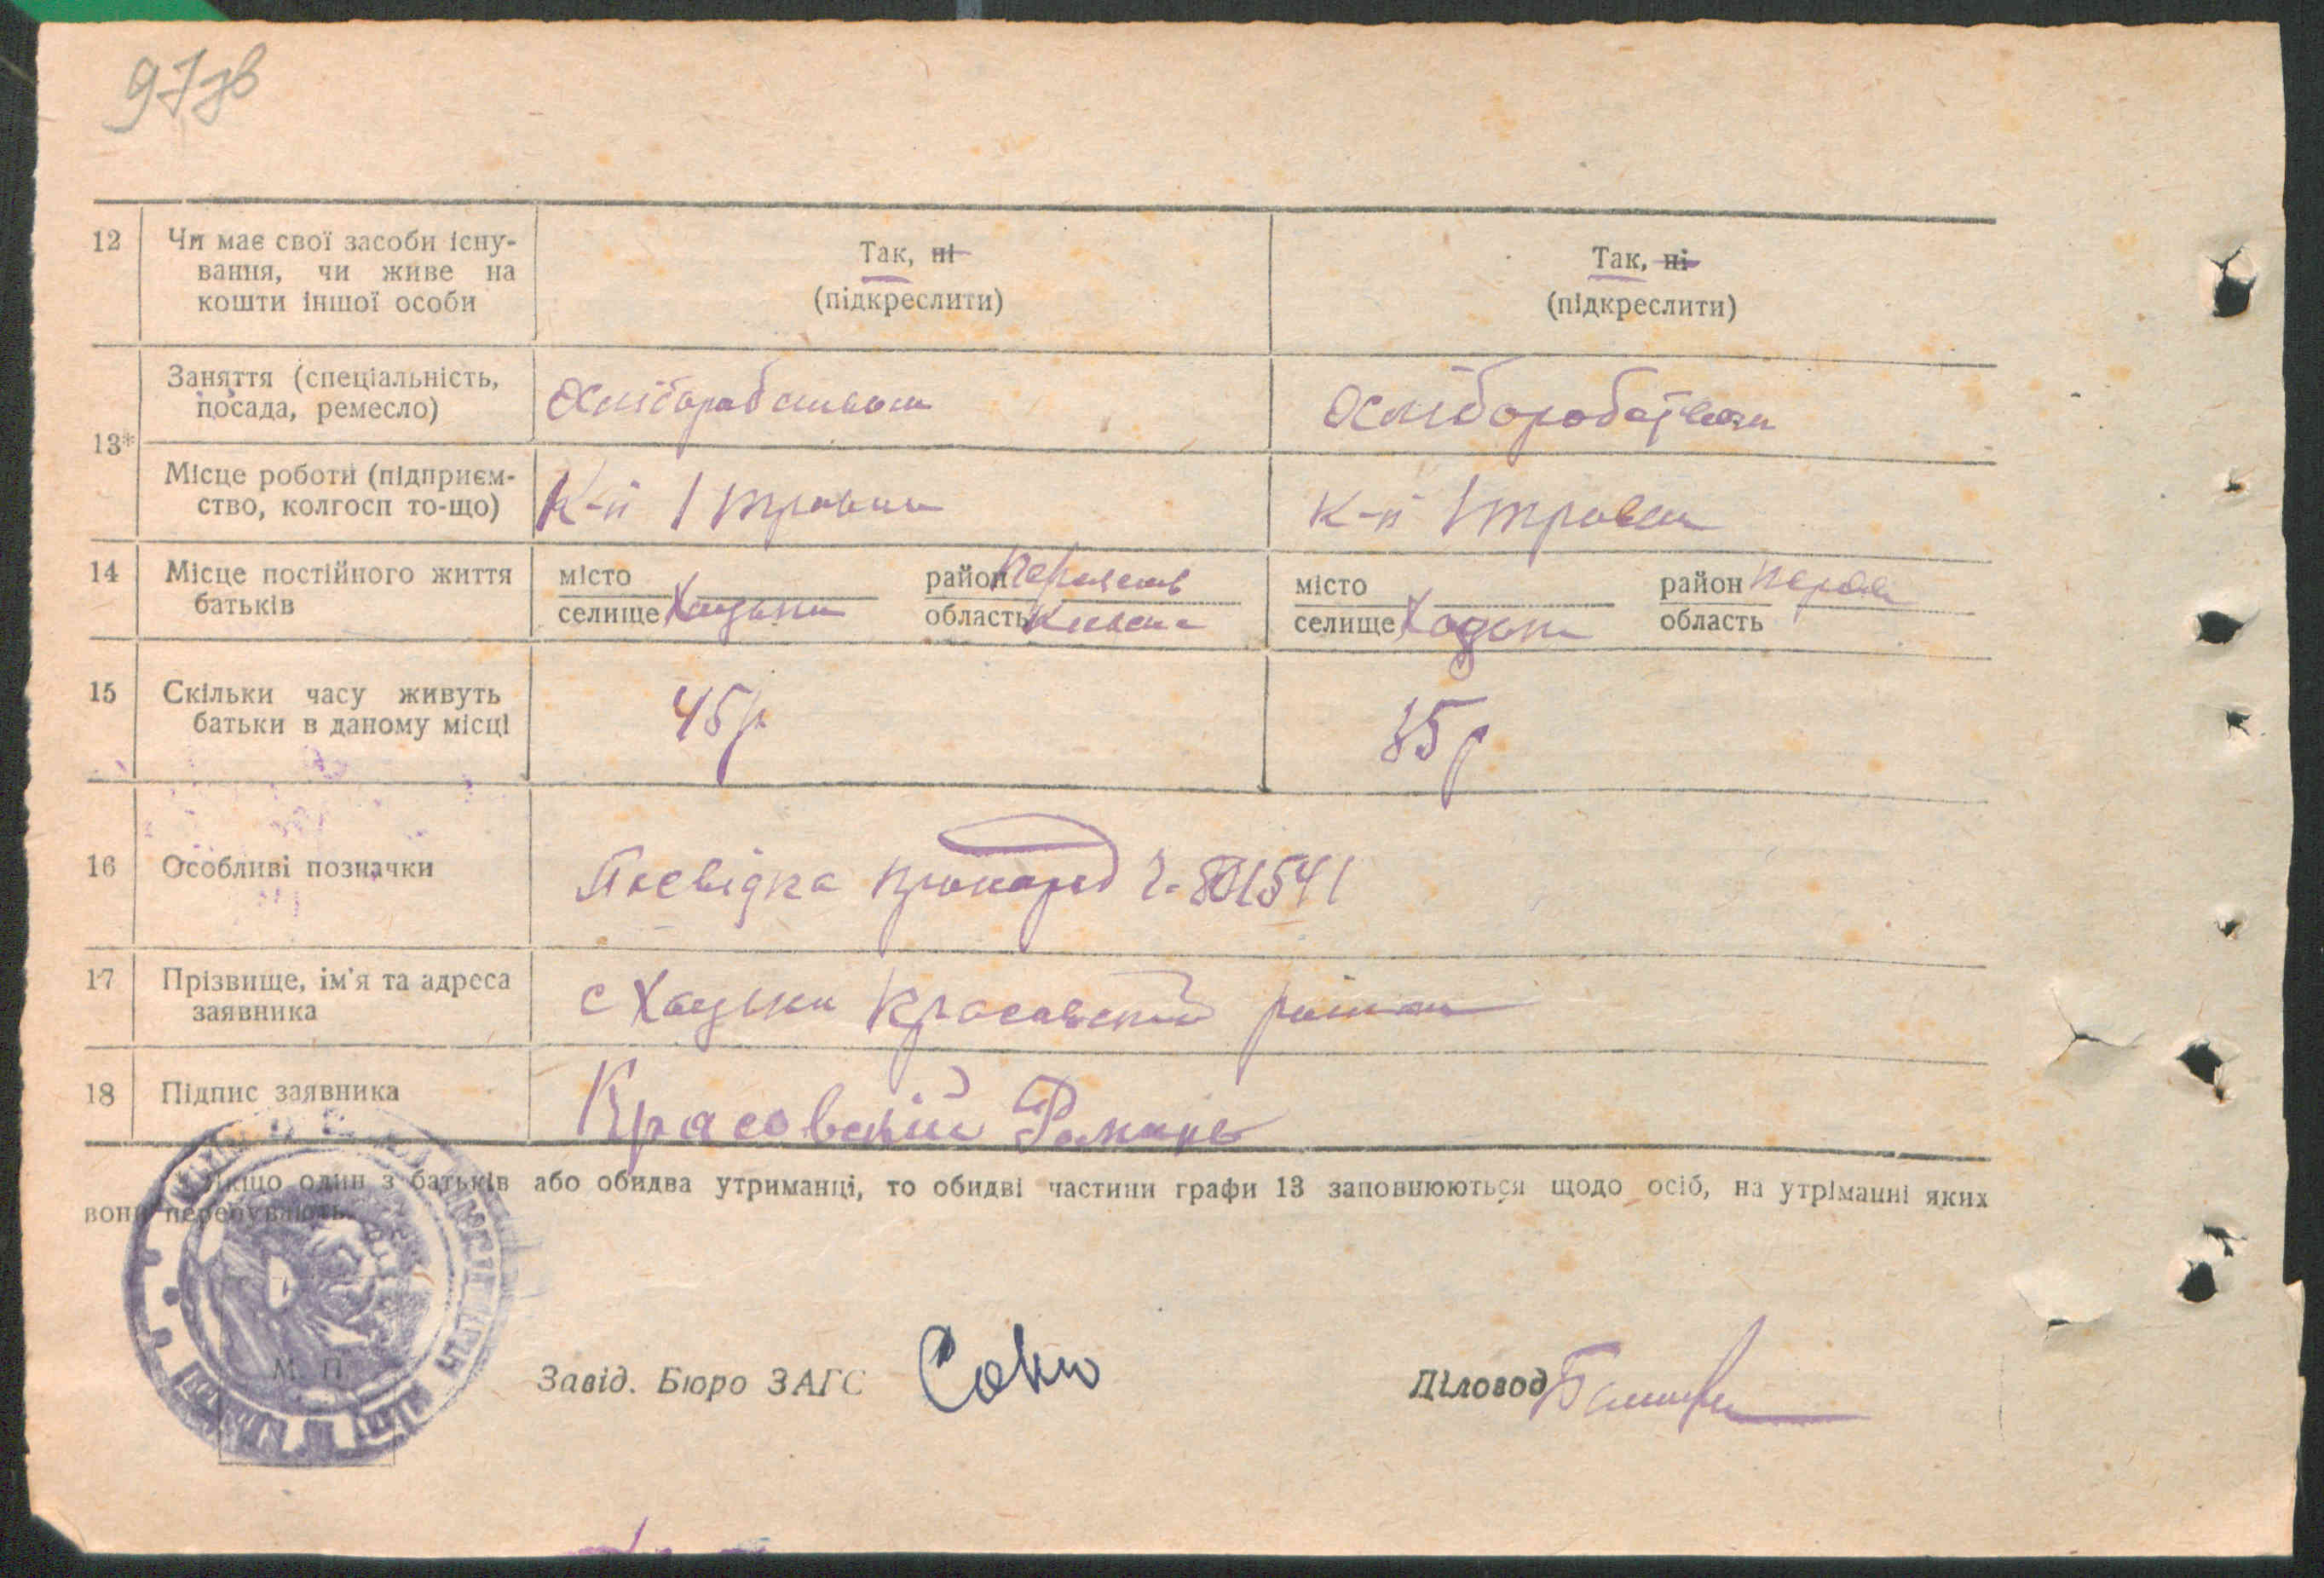 97зв
12
Чи має свої засоби існу-
вання, чи живе на
кошти іншої особи
Так, ні
(підкреслити)
Так, ні
(підкреслити)
13*
Заняття (спеціальність,
посада, ремесло)
Місце роботи (підприєм-
ство, колгосп то-що)
К-п 1 травня
К-п 1 травня
14
Місце постійного життя
батьків
місто
селище Хацьки
район
область Київська
місто
селище
район
область
15
Скільки часу живуть
батьки в даному місці
45 р
35 р
16
Особливі позначки
Посвідка
17
Прізвище, ім'я та адреса
заявника
с Хацьки Красовский
18
Підпис заявника
Красовский Роман
* Якщо один з батьків або обидва утриманці, то обидві частини графи 13 заповнюються щодо осіб, на утріманні яких
вони перебувають.
М. П.
Завід. Бюро ЗАГС
Діловод